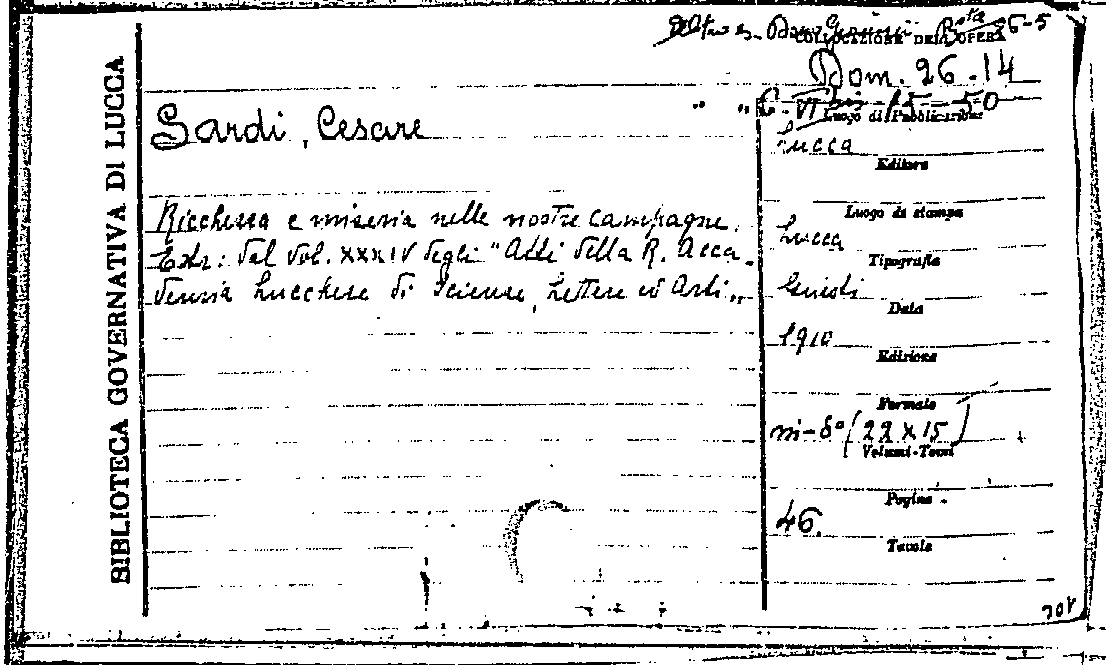 BIBLIOTECA GOVERNATIVA DI LUCCA
COLLOCAZIONE DELL'OPERA
Dom. 26.14
" " C. VI bis 15-50
Sardi, Cesare
Ricchezza e miseria nelle nostre campagne.
Estr: dal vol. XXXIV degli "Atti della R. Acca-
demia Lucchese di Scienze, Lettere ed Arti"
Luogo di Pubblicazione
Lucca
Editore
Luogo di stampa
Lucca
Tipografia
Giusti
Data
1910
Edizione
Formato
in-8° (22 x 15)
Volumi-Tomi
Pagine
46.
Tavole